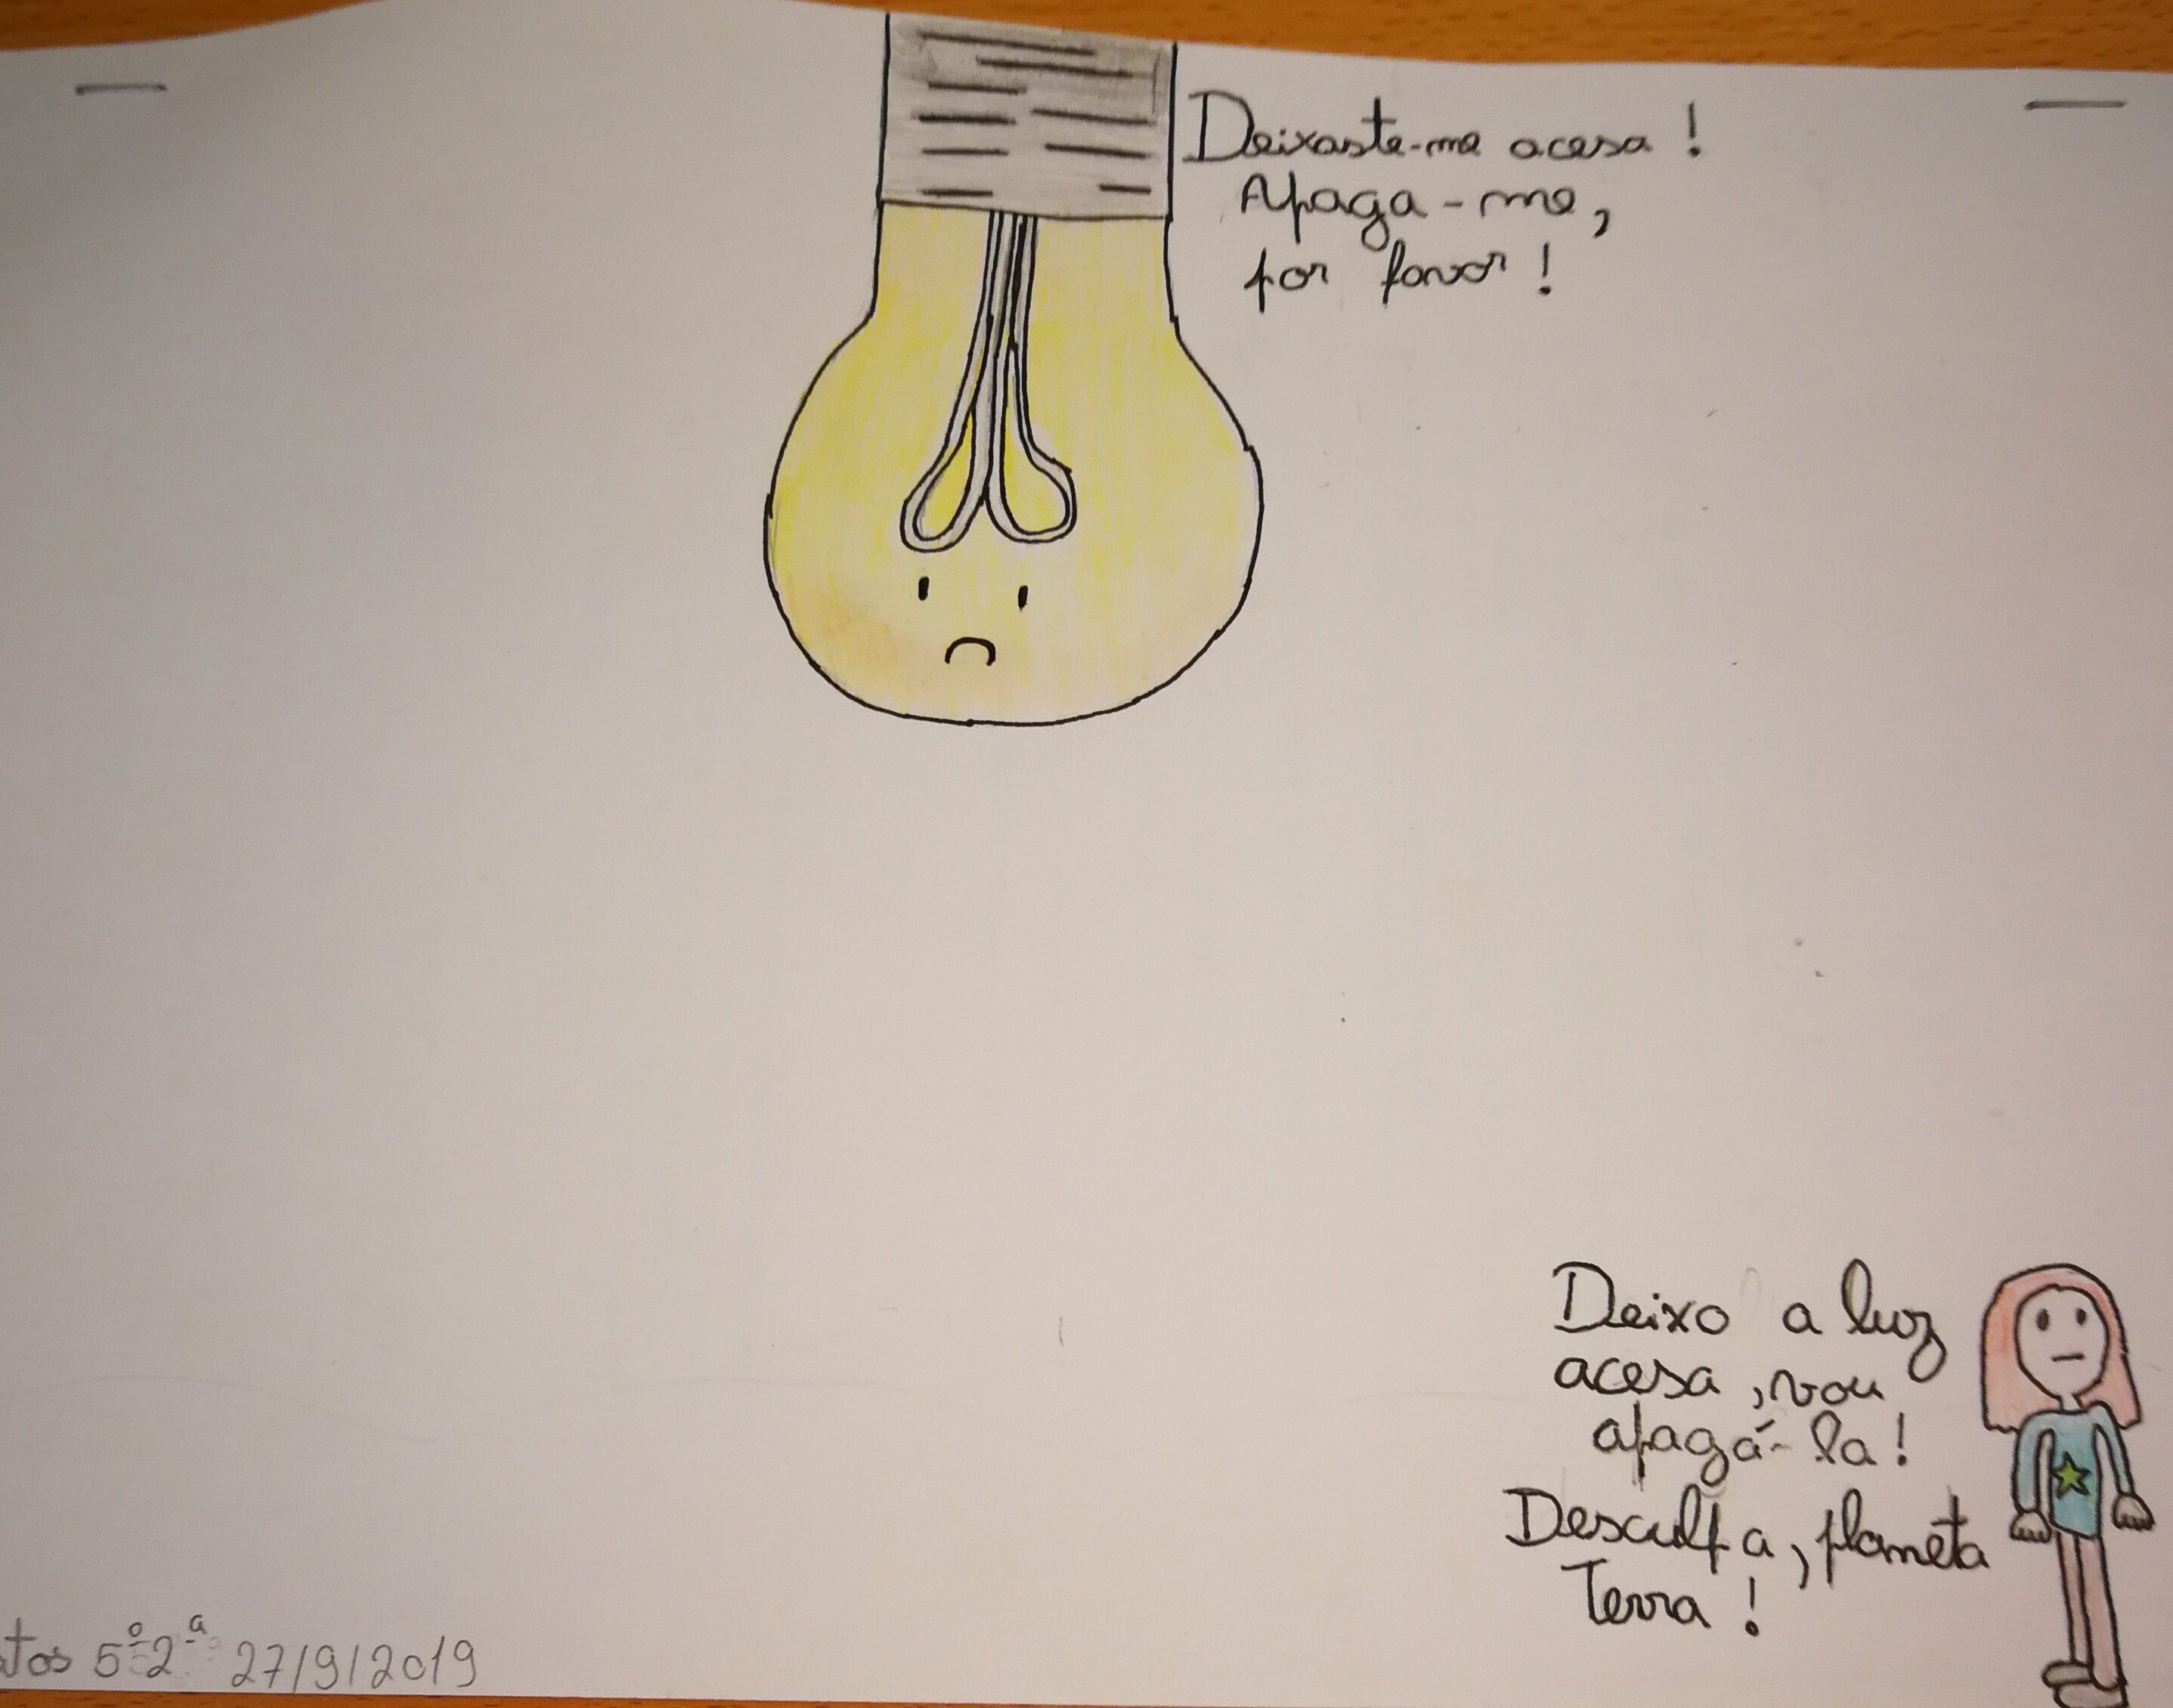 Deixaste-me acesa!
Apaga-me,
por favor!
Deixo a luz
acesa, vou
apagá-la!
Desculpa, planeta
Terra!
tos 5º2ª 27/9/2019